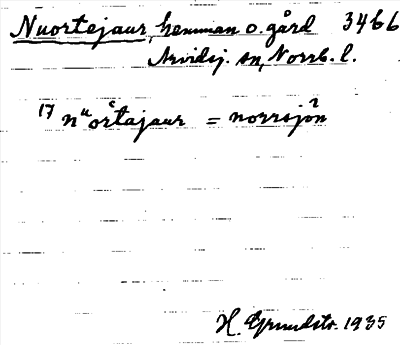 Nuortejaur, hemman o. gård 3466
Arvidsj. sn, Norrb. l.
17 nuortajaur = norrsjön
H. Grundstr. 1935